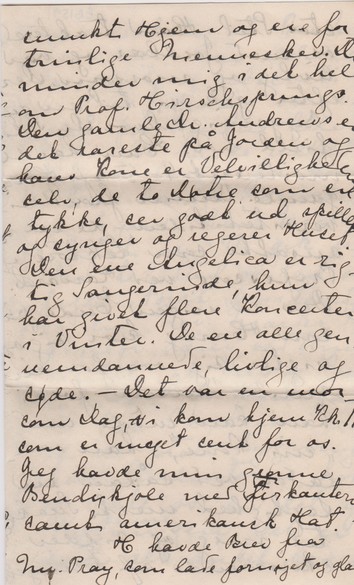 smukt Hjem og ere for
trinlige Mennesker. De
minder mig i det hele
om Prof. Hirschsprungs.
Den gamle Ch. Andrews er
det rareste på Jorden og
hans Kone er Velvilligheden
selv, de to Døtre som er
tykke, ser godt ud, spille
og synger og regerer Huset
Den ene Angelica er rig
tig Sangerinde, hun
har givet flere Koncerter
i Vinter. De ere alle gen
nemdannede, livlige og
søde. — Det var en mor
som Dag, vi kom hjem Kl. 11
som er meget sent for os.
Jeg havde min grønne
Bendixkjole med
samt amerikansk Hat.
H havde Brev fra
Mr. Pray, som lade fornøjet og glad